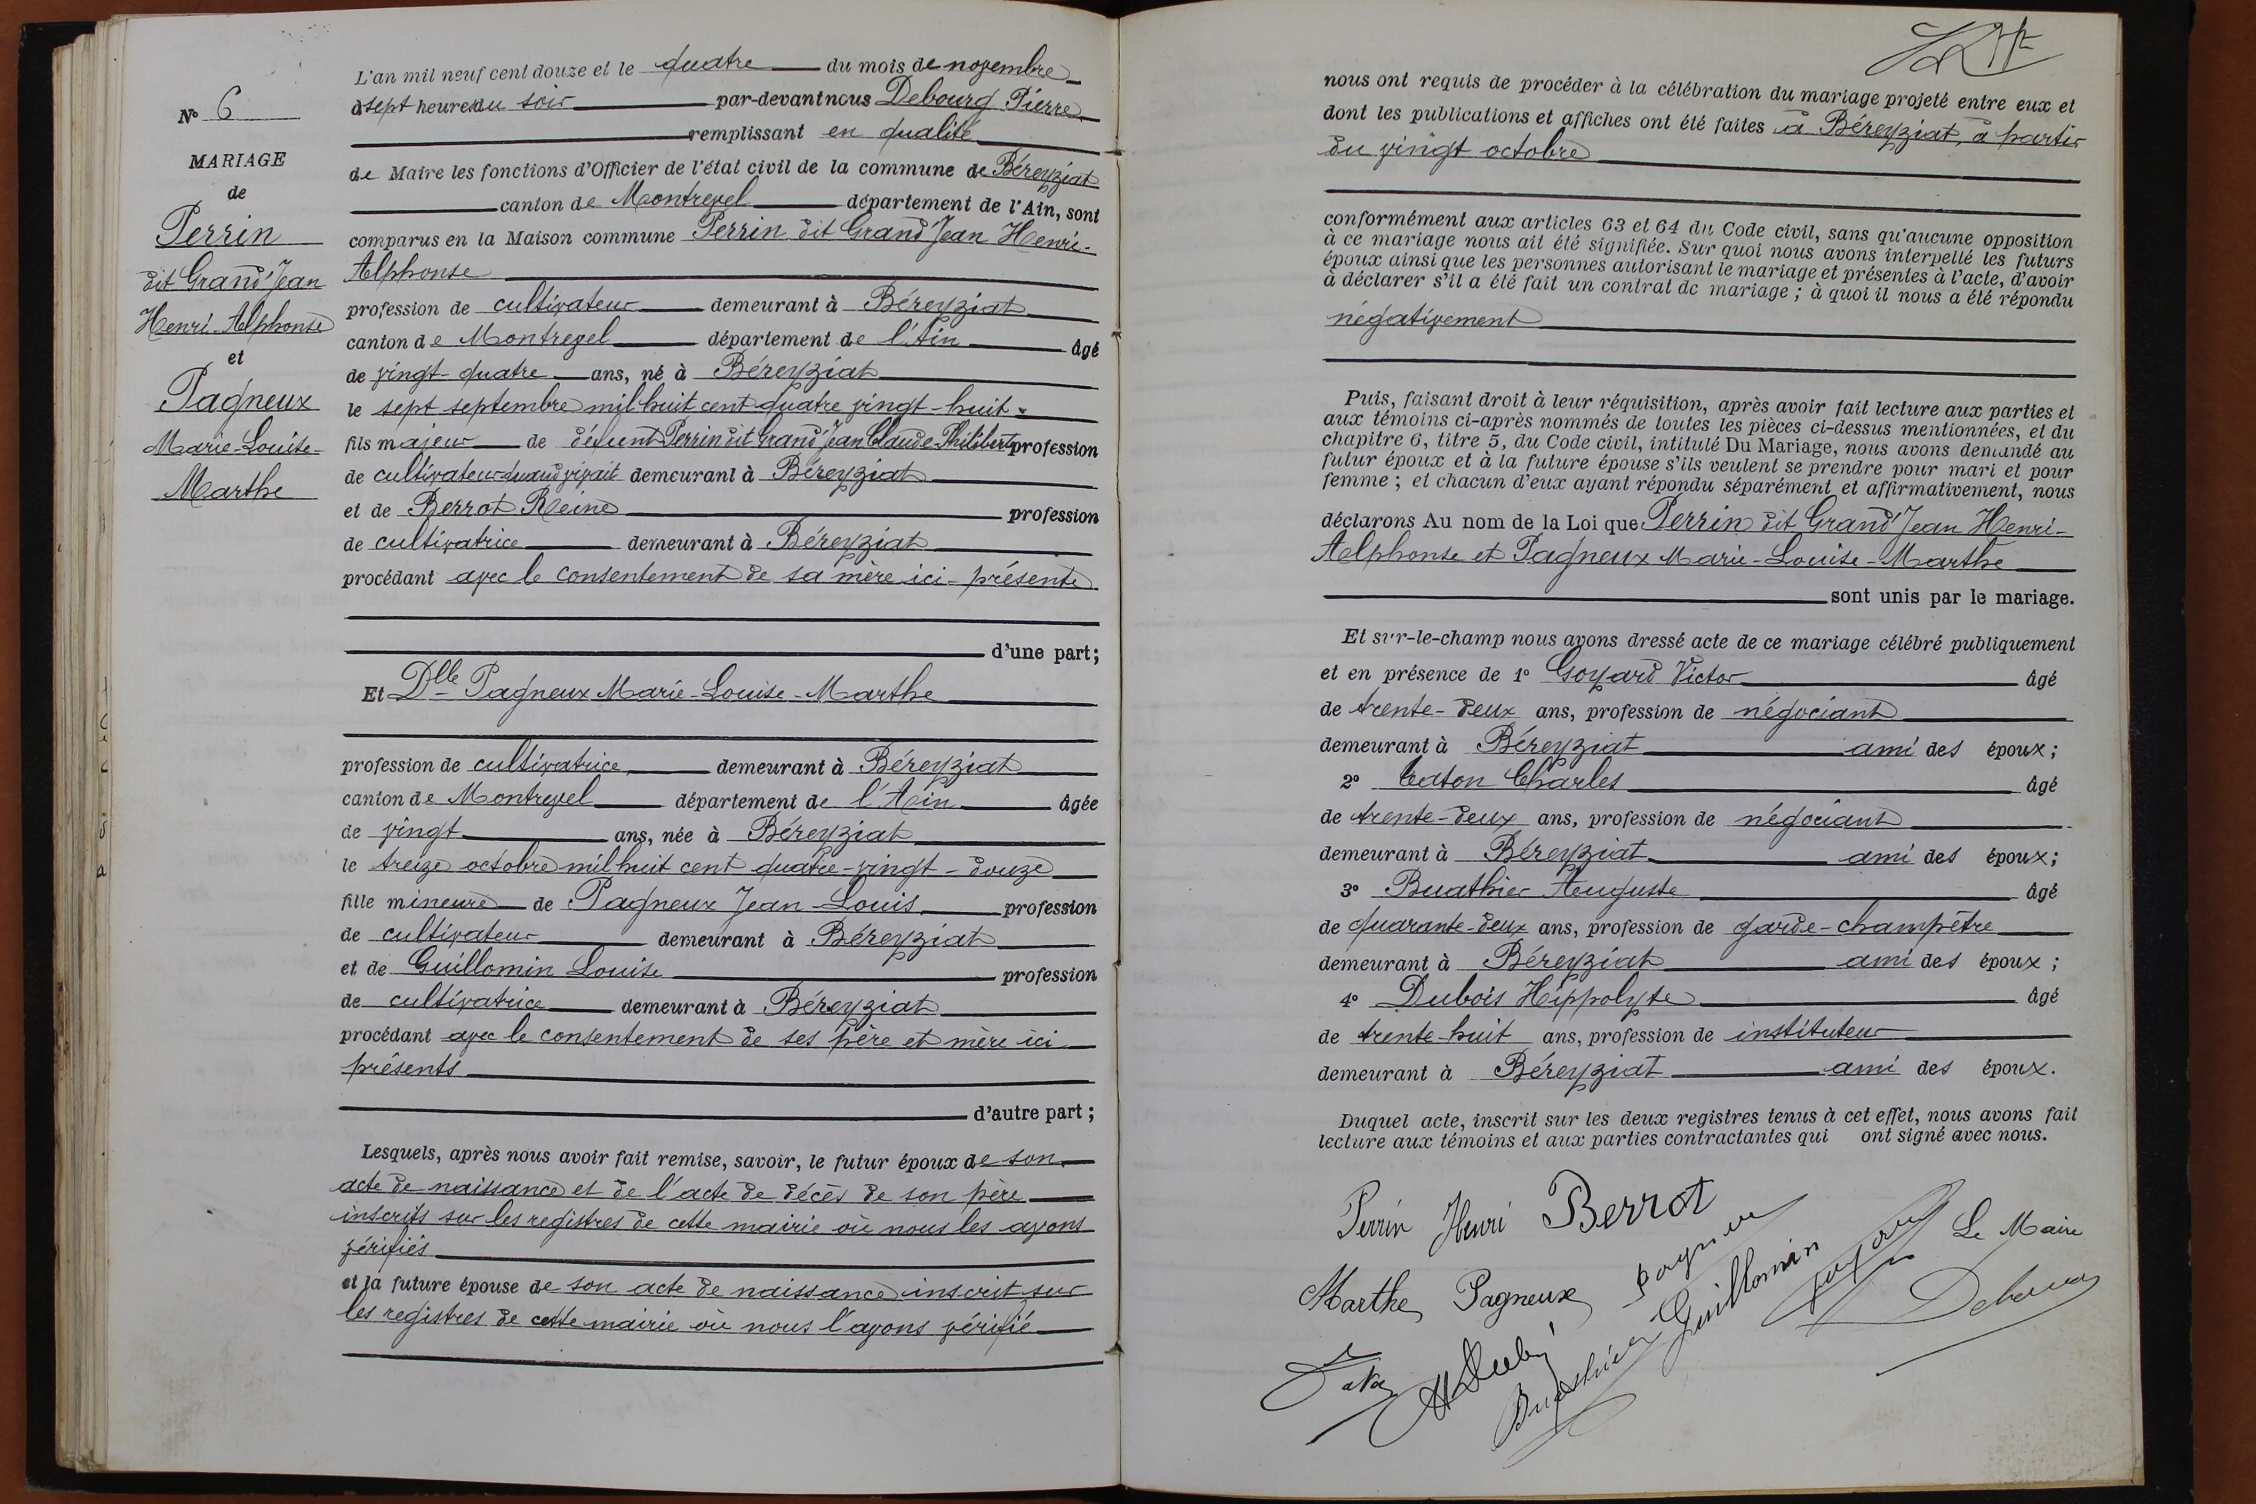 N° 6
MARIAGE
de
Perrin
dit Grand'Jean
Henri-Alphonse
et
Pagneux
Marie-Louise-
Marthe
L'an mil neuf cent douze et le quatre du mois de novembre
à sept heures du soir par-devant nous Debourg Pierre
remplissant en qualité
de Maire les fonctions d'Officier de l'état civil de la commune de Béreyziat
canton de Montrevel département de l'Ain, sont
comparus en la Maison commune Perrin dit Grand'Jean Henri-
Alphonse
profession de cultivateur demeurant à Béreyziat
canton de Montrevel département de l'Ain âgé
de vingt-quatre ans, né à Béreyziat
le sept septembre mil huit cent quatre vingt-huit
fils majeur de défunt Perrin dit Grand'Jean Claude-Philibert profession
de cultivateur quand vivait demeurant à Béreyziat
et de Berrot Reine profession
de cultivatrice demeurant à Béreyziat
procédant avec le consentement de sa mère ici-présente
d'une part;
Et Dlle Pagneux Marie-Louise-Marthe
profession de cultivatrice demeurant à Béreyziat
canton de Montrevel département de l'Ain âgée
de vingt ans, née à Béreyziat
le treize octobre mil huit cent quatre-vingt-douze
fille mineure de Pagneux Jean-Louis profession
de cultivateur demeurant à Béreyziat
et de Guillomin Louise profession
de cultivatrice demeurant à Béreyziat
procédant avec le consentement de ses père et mère ici
présents
d'autre part;
Lesquels, après nous avoir fait remise, savoir, le futur époux de son
acte de naissance et de l'acte de décès de son père
inscrits sur les registres de cette mairie où nous les avons
vérifiés
et la future épouse de son acte de naissance inscrit sur
les registres de cette mairie où nous l'avons vérifié
nous ont requis de procéder à la célébration du mariage projeté entre eux et
dont les publications et affiches ont été faites à Béreyziat, à partir
du vingt octobre
conformément aux articles 63 et 64 du Code civil, sans qu'aucune opposition
à ce mariage nous ait été signifiée. Sur quoi nous avons interpellé les futurs
époux ainsi que les personnes autorisant le mariage et présentes à l'acte, d'avoir
à déclarer s'il a été fait un contrat de mariage; à quoi il nous a été répondu
négativement
Puis, faisant droit à leur réquisition, après avoir fait lecture aux parties et
aux témoins ci-après nommés de toutes les pièces ci-dessus mentionnées, et du
chapitre 6, titre 5, du Code civil, intitulé Du Mariage, nous avons demandé au
futur époux et à la future épouse s'ils veulent se prendre pour mari et pour
femme; et chacun d'eux ayant répondu séparément et affirmativement, nous
déclarons Au nom de la Loi que Perrin dit Grand'Jean Henri-
Alphonse et Pagneux Marie-Louise-Marthe
sont unis par le mariage.
Et sur-le-champ nous avons dressé acte de ce mariage célébré publiquement
et en présence de 1° Goyard Victor âgé
de trente-deux ans, profession de négociant
demeurant à Béreyziat ami des époux;
2° Caton Charles âgé
de trente-deux ans, profession de négociant
demeurant à Béreyziat ami des époux;
3° Buathier Auguste âgé
de quarante-deux ans, profession de garde-champêtre
demeurant à Béreyziat ami des époux;
4° Dubois Hippolyte âgé
de trente-huit ans, profession de instituteur
demeurant à Béreyziat ami des époux.
Duquel acte, inscrit sur les deux registres tenus à cet effet, nous avons fait
lecture aux témoins et aux parties contractantes qui ont signé avec nous.
Perrin Henri Berrot
Marthe Pagneux Pagneux Guillomin Goyard Le Maire
HDubois Buathier Debourg